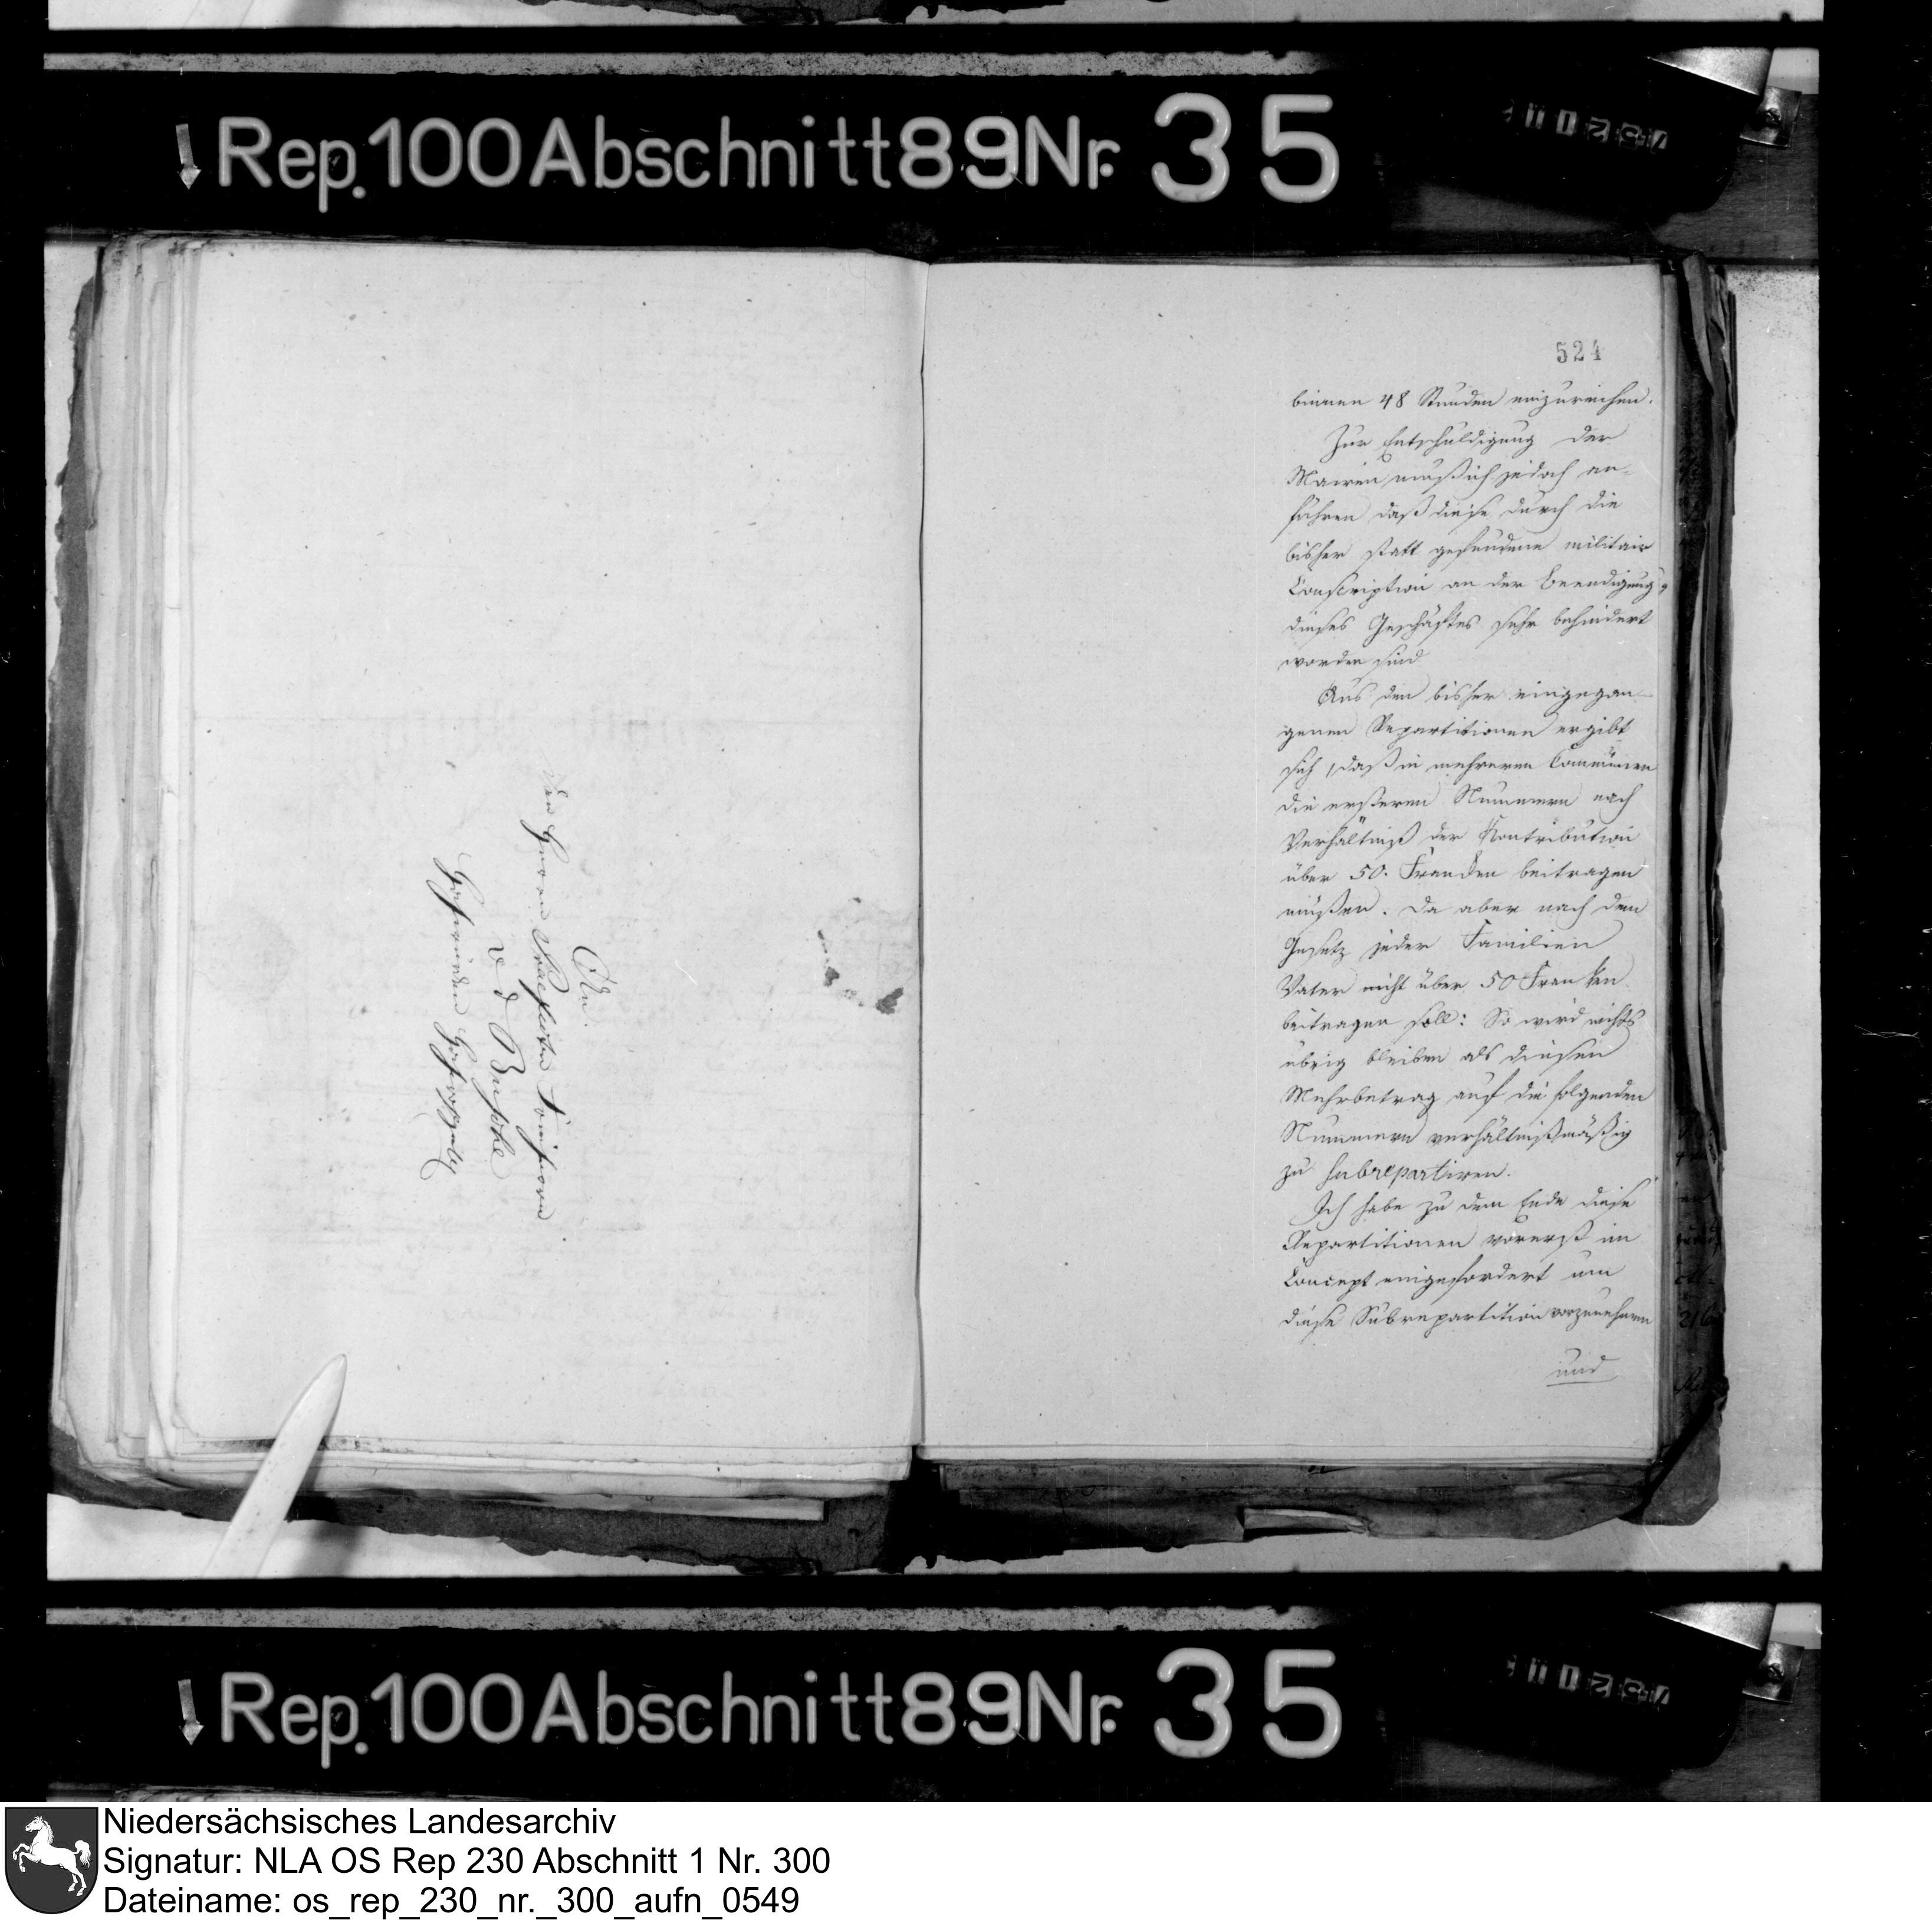 Rep. 100 Abschnitt 89 Nr. 35
An
den Herrn Praefecten
v d Busche
Hochwürden Hochwohlgeb
524
binnen 48 Stunden einzureichen.
Zur Entschuldigung der
Mairien muß ich jedoch an-
führen daß diese durch die
bisher statt gefundene militair
Conscription an der Beendigung
dieses Geschäftes sehr behindert
worden sind
Aus den bisher eingegan-
genen Repartitionen ergibt
sich, daß in mehreren Communen
die ersteren Nummern nach
Verhältniß der Kontribution
über 50. Franken beitragen
müßen. Da aber nach dem
Gesetz jeder Familien
Vater nicht über 50 Franken
beitragen soll: So wird nichts
übrig bleiben als diesen
Mehrbetrag auf die folgenden
Nummern verhältnißmäßig
zu subrepartiren.
Ich habe zu dem Ende diese
Repartitionen vorerst im
Concept eingefordert um
diese Subrepartition vorzunehmen
und
216
Rep. 100 Abschnitt 89 Nr. 35
Niedersächsisches Landesarchiv
Signatur: NLA OS Rep 230 Abschnitt 1 Nr. 300
Dateiname: os_rep_230_nr._300_aufn_0549